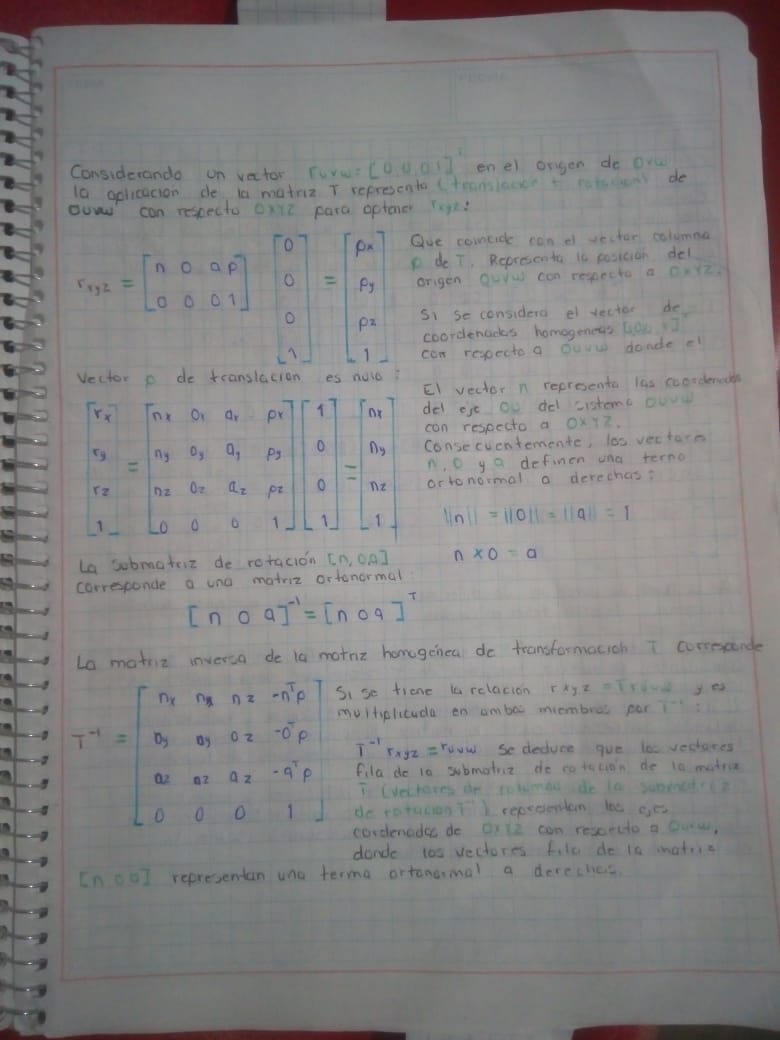 Considerando un vector ruvw=[0,0,0,1]ᵀ en el origen de Ovw
la aplicacion de la matriz T representa (translacion + rotacion) de
OUVW con respecto OXYZ para optener rxyz:
rxyz = [n 0 a p; 0 0 0 1] [0; 0; 0; 1] = [px; py; pz; 1]
Que coincide con el vector columna
p de T. Representa la posición del
origen OUVW con respecto a OXYZ.
Si se considera el vector de
coordenadas homogeneas
con respecto a OUVW donde el
Vector p de translacion es nulo:
[rx; ry; rz; 1] = [nx ox ax px; ny oy ay py; nz oz az pz; 0 0 0 1] [1; 0; 0; 1] = [nx; ny; nz; 1]
El vector n representa las coordenadas
del eje OU del sistema OUVW
con respecto a OXYZ.
Consecuentemente, los vectores
n, o y a definen una terno
ortonormal a derechas:
||n|| = ||0|| = ||a|| = 1
n x 0 = a
La submatriz de rotación [n,0,a]
corresponde a una matriz ortonormal
[n o a]⁻¹ = [n o a]ᵀ
La matriz inversa de la matriz homogénea de transformación T corresponde
T⁻¹ = [nx ny nz -nᵀp; oy oy oz -oᵀp; az az az -aᵀp; 0 0 0 1]
Si se tiene la relación rxyz = Truvw y es
multiplicada en ambos miembros por T⁻¹:
T⁻¹ rxyz = ruvw se deduce que los vectores
fila de la submatriz de rotación de la matriz
T (vectores de columna de la submatriz
de rotacion T⁻¹) representan los ejes
cordenados de OXYZ con respecto a OUVW,
donde los vectores fila de la matriz
[n o a] representan una terma ortonormal a derechas.